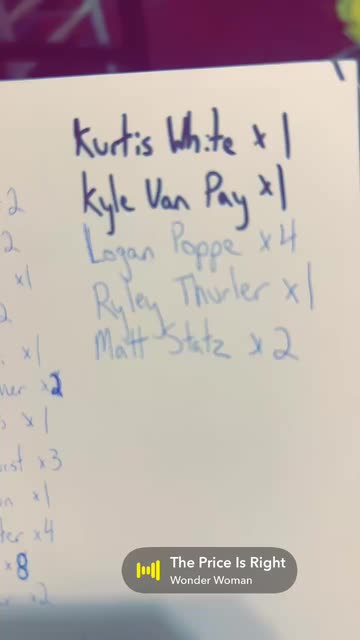 Kurtis White x 1
Kyle Van Pay x1
Logan Poppe x 4
Ryley Thurler x 1
Matt Statz x 2
2
2
x1
2
x1
x2
x 1
x3
x1
x4
x8
x2
The Price Is Right
Wonder Woman